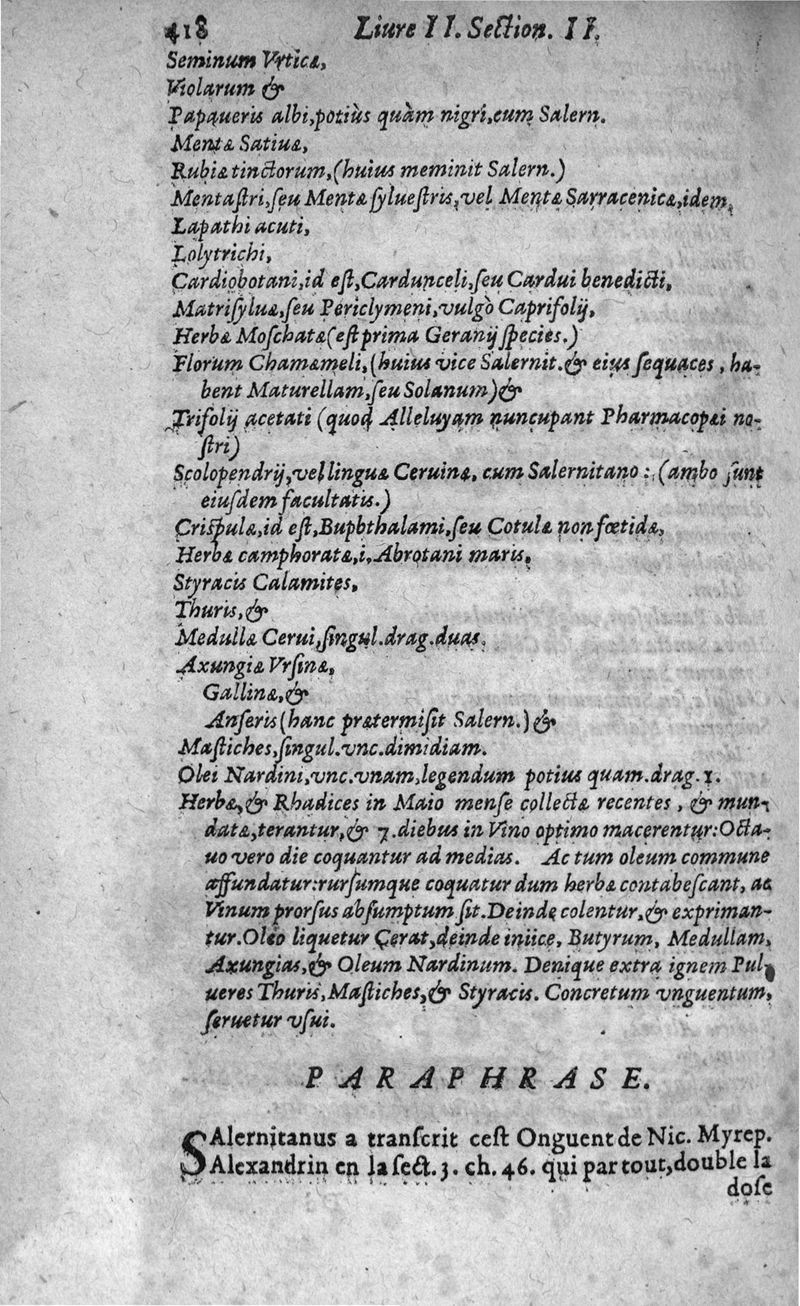 418 Liure II. Section. II.
Seminum Vrticæ,
Violarum &
Papaueris albi, potiùs quàm nigri, cum Salern.
Mentæ Satiuæ,
Rubiæ tinctorum, (huius meminit Salern.)
Mentaſtri, ſeu Mentæ ſylueſtris, vel Mentæ Sarracenicæ, idem,
Lapathi acuti,
Lolytrichi,
Cardiobotani, id eſt, Cardunceli, ſeu Cardui benedicti,
Matriſyluæ, ſeu Periclymeni, vulgò Caprifolij,
Herbæ Moſchatæ (eſt prima Geranij ſpecies.)
Florum Chamæmeli, (huius vice Salernit. & eius ſequaces, ha-
bent Maturellam, ſeu Solanum) &
Trifolij acetati (quod Alleluyam nuncupant Pharmacopæi no-
ſtri)
Scolopendrij, vel linguæ Ceruinæ, cum Salernitano: (ambo ſunt
eiuſdem facultatis.)
Criſpulæ, id eſt, Buphthalami, ſeu Cotulæ non fœtidæ,
Herbæ camphoratæ, i, Abrotani maris,
Styracis Calamites,
Thuris, &
Medullæ Cerui, ſingul. drag. duas.
Axungiæ Vrſinæ,
Gallinæ, &
Anſeris (hanc prætermiſit Salern.) &
Maſtiches, ſingul. vnc. dimidiam.
Olei Nardini, vnc. vnam, legendum potius quam. drag. 1.
Herbæ, & Rhadices in Maio menſe collectæ recentes, & mun-
datæ, terantur, & 7. diebus in Vino optimo macerentur: Octa-
uo vero die coquantur ad medias. Ac tum oleum commune
affundatur: rurſumque coquatur dum herbæ contabeſcant, ac
Vinum prorſus abſumptum ſit. Deinde colentur, & expriman-
tur. Oleo liquetur Cerat, deinde iniice, Butyrum, Medullam,
Axungias, & Oleum Nardinum. Denique extra ignem Pul-
ueres Thuris, Maſtiches, & Styracis. Concretum vnguentum,
ſeruetur vſui.
PARAPHRASE.
SAlernitanus a tranſcrit ceſt Onguent de Nic. Myrep.
Alexandrin en la ſect. 3. ch. 46. qui par tout, double la
doſe